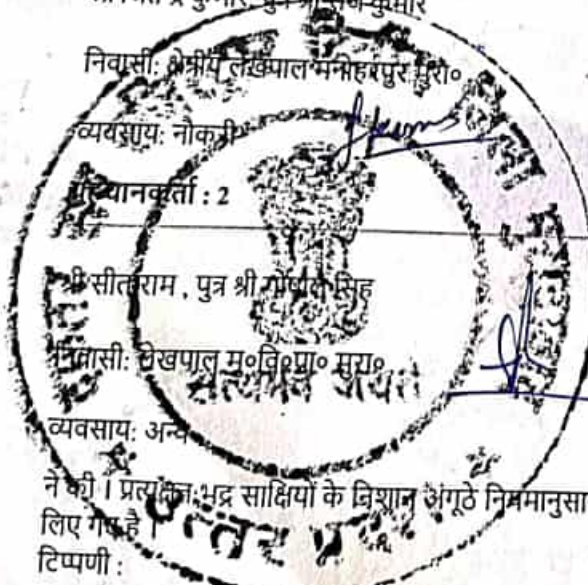 कुमार, पुत्र श्री राज कुमार
निवासी: क्षेत्रीय लेखपाल मनोहरपुर मुरा०
व्यवसाय: नौकरी
पहचानकर्ता : 2
श्री सीताराम , पुत्र श्री गोपाल सिंह
निवासी: लेखपाल मु०वि०प्रा० मुरा०
सत्यमेव जयते
व्यवसाय: अन्य
ने की । प्रत्यक्षतः भद्र साक्षियों के निशान अंगूठे नियमानुसा
लिए गए है ।
उत्तर प्रदेश
टिप्पणी :